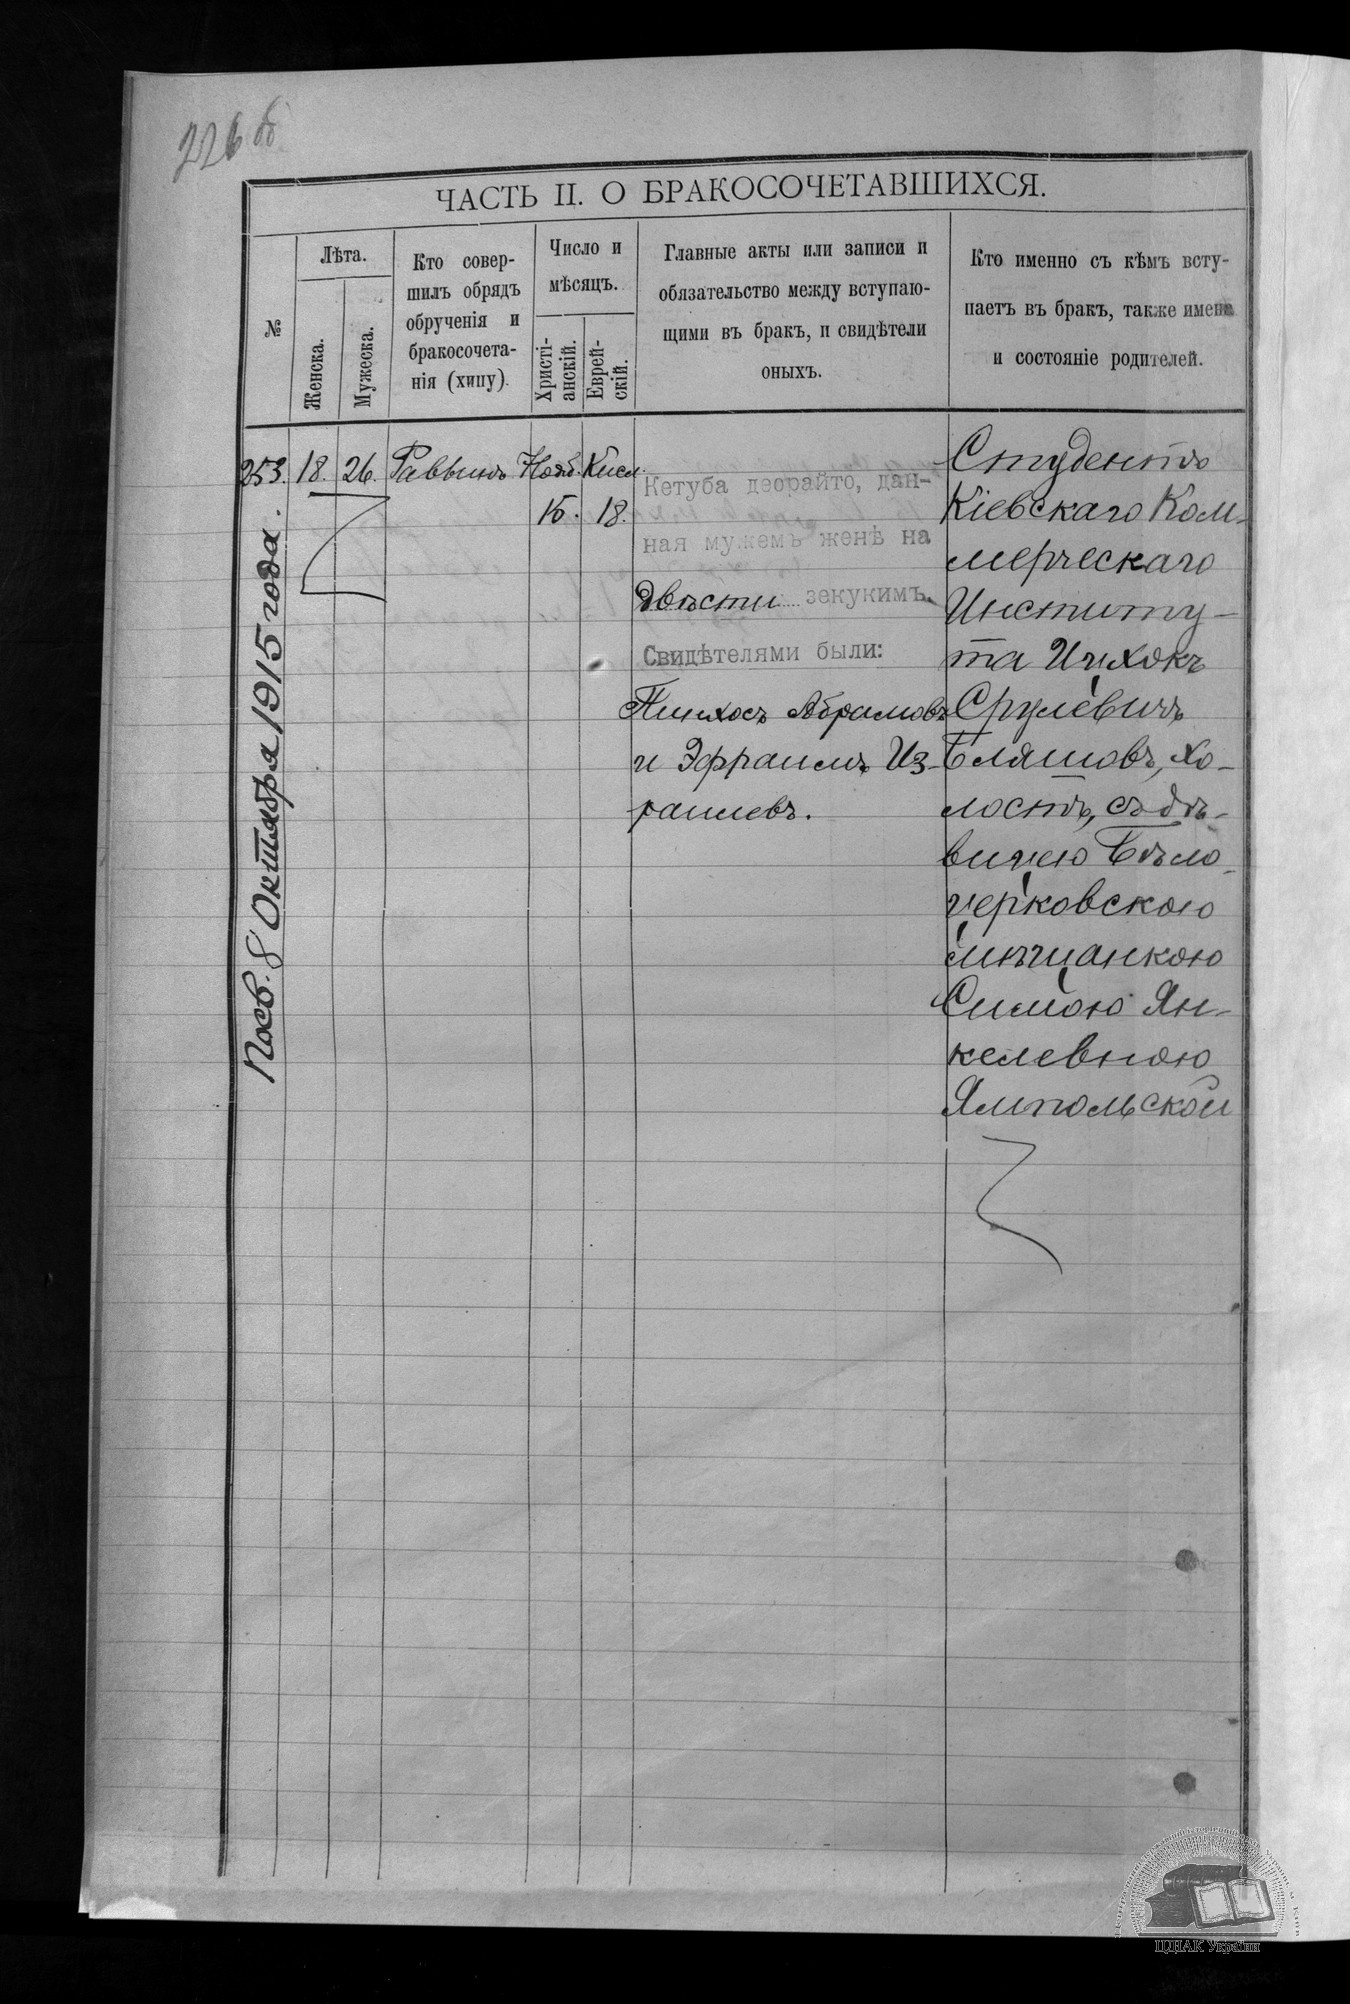 226 об
ЧАСТЬ II. О БРАКОСОЧЕТАВШИХСЯ.
№
Лѣта.
Женска.
Мужеска.
Кто совер-
шилъ обрядъ
обрученія и
бракосочета-
нія (хипу).
Число и
мѣсяцъ.
Христі-
анскій.
Еврей-
скій.
Главные акты или записи и
обязательство между вступаю-
щими въ бракъ, и свидѣтели
оныхъ.
Кто именно съ кѣмъ всту-
паетъ въ бракъ, также имена
и состояніе родителей.
253.
18.
26.
Раввинъ
Нояб.
15.
Кисл.
18.
Кетуба деорайто, дан-
ная мужемъ женѣ на
двѣсти зекукимъ.
Свидѣтелями были:
Пинхосъ Абрамовъ
и Эфраимъ Из-
раилевъ.
Студентъ
Кіевскаго Ком-
мерческаго
Институ-
та Ицхокъ
Срулевичъ
Бляшовъ, хо-
лостъ, съ дѣ-
вицею Бѣло-
церковскою
мѣщанкою
Симою Ян-
келевною
Ямпольской
Посв. 8 Октября 1915 года.
ЦДІАК України